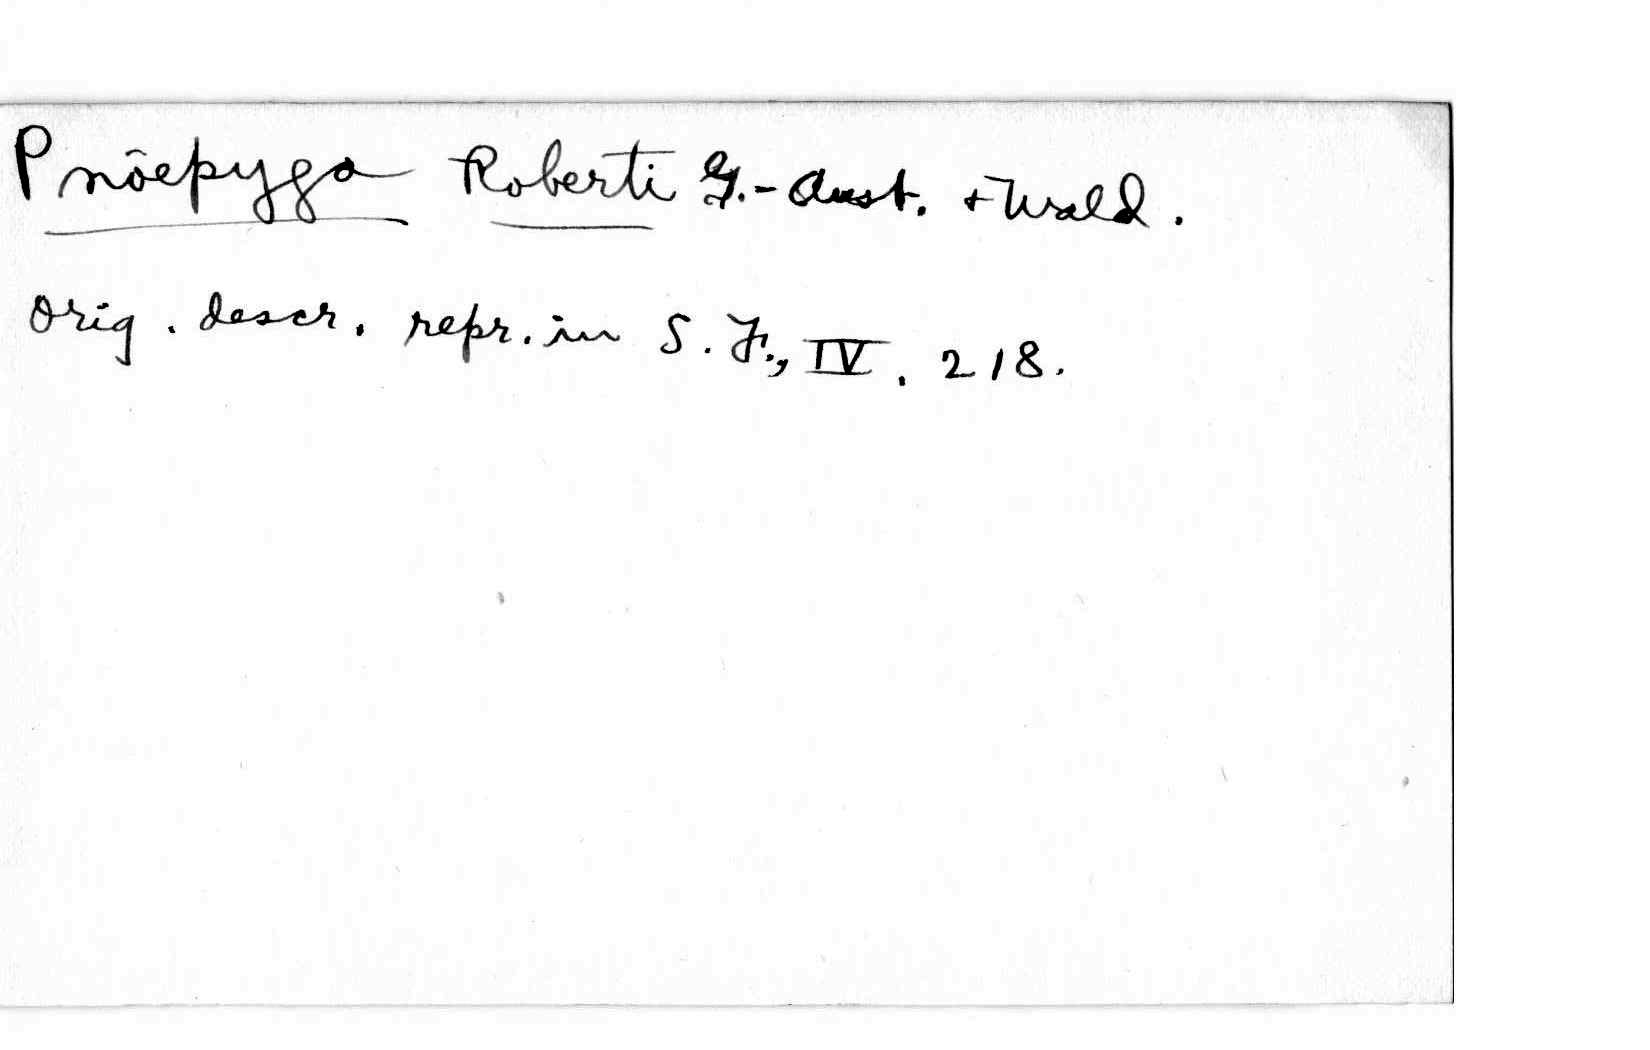 Pnöepyga Roberti G.-Aust. + Wald.
Orig. descr. repr. in S. F., IV. 218.